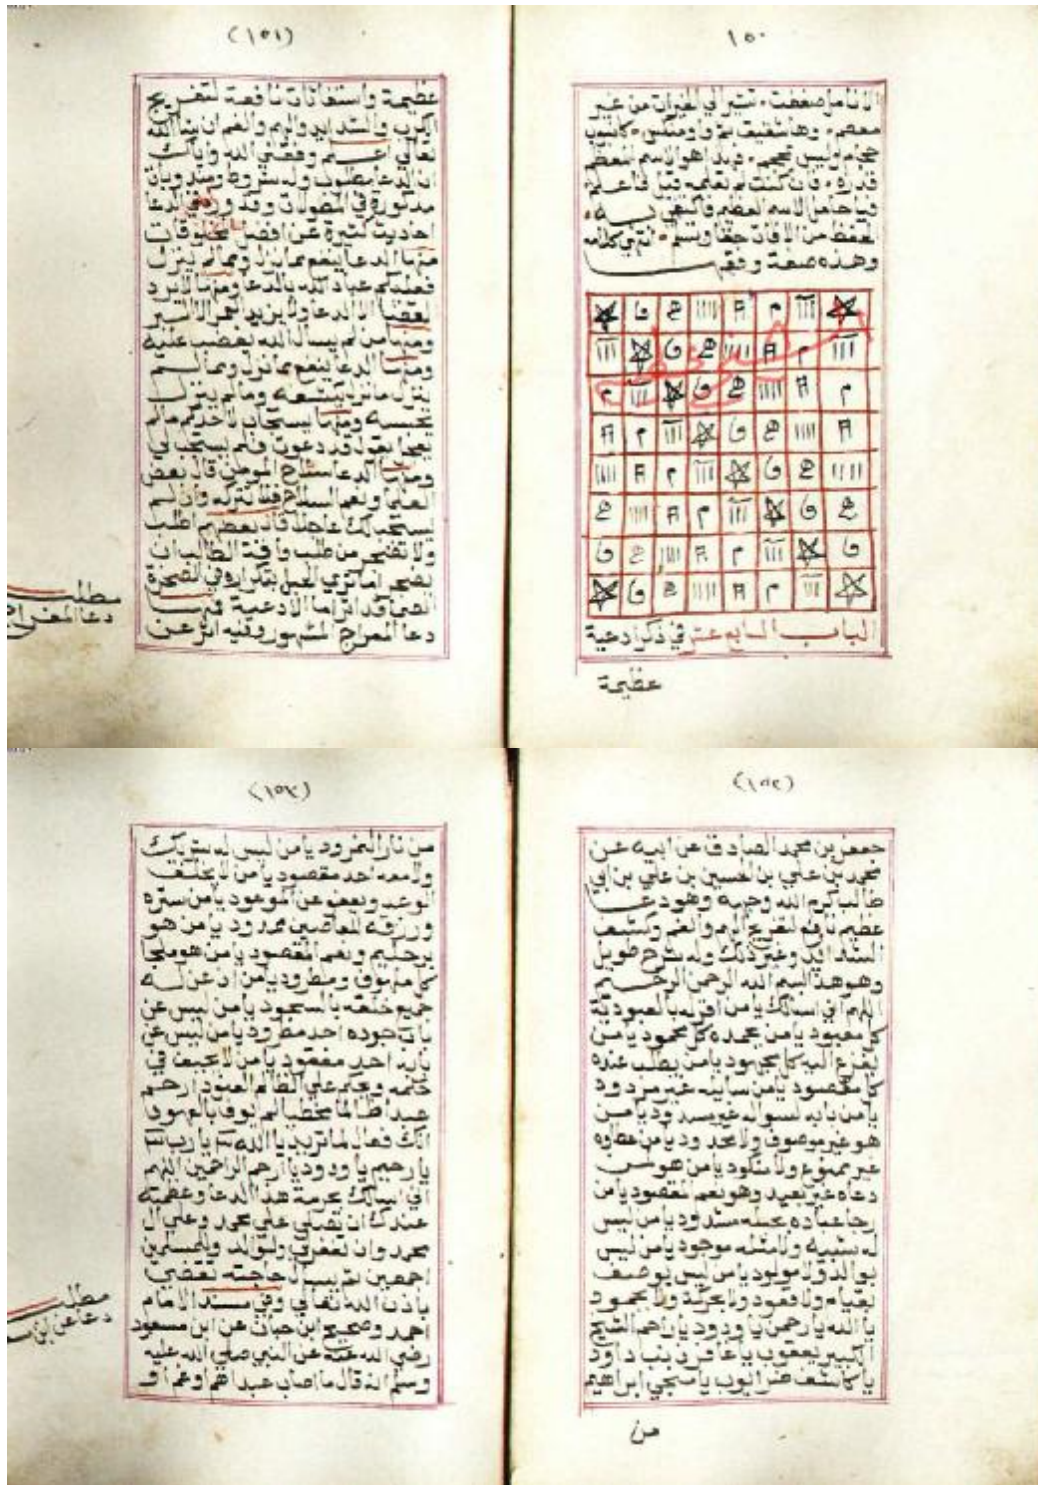 ١٥٠
الانامل صففت * تشير الى الخيرات من غير
معصم * وهاء شقيق ثم واو منكس * كانبوب
حجام وليس بمحجم * فهذا هو الاسم المعظم
قدره * فان كنت لم تعلم به قبل فاعلم
فيا حامل الاسم العظيم فاكتفي به *
لتحفظ من الافات حقا وتسلم * انتهى كلامه
وهذه صفة وفقه
الباب السابع عشر في ذكر ادعية
عظيمة
(١٥١)
عظيمة واستغاثات نافعة لتفريج
الكرب والشدايد والهم والغم ان شا الله
تعالى اعلم وفقني الله واياك
ان الدعا مطلوب وله شروط ومندوبات
مذكورة في المطولات وقد ورد في الدعا
احاديث كثيرة عن افضل المخلوقات
منها الدعا ينفع مما نزل ومما لم ينزل
فعليكم عباد الله بالدعا ومنها لا يرد
القضا الا الدعا ولا يزيد العمر الا البر
ومنها من لم يسال الله يغضب عليه
ومنها الدعا ينفع مما نزل ومما لم
ينزل ما نزل يكشفه وما لم ينزل
يحبسه ومنها يستجاب لاحدكم ما لم
يعجل يقول قد دعوت فلم يستجب لي
ومنها الدعا سلاح المومن قال بعض
العلما ونعم السلاح فلا تتركه وان لم
يستجب لك عاجلا قال بعضهم اطلب
ولا تضجر من طلب وافة الطالب ان
يضجر اما ترى الحبل بتكراره في الصخرة
الصما قد اثرا اما الادعية فمنها
دعا المعراج المشهور وفيه اثر عن
مطلب
دعا المعراج
(١٥٢)
جعفر بن محمد الصادق عن ابيه عن
محمد بن علي بن الحسين بن علي بن ابي
طالب كرم الله وجهه وهو دعا
عظيم نافع لتفريج الهم والغم وكشف
الشدايد وغير ذلك وله شرح طويل
وهو هذا بسم الله الرحمن الرحيم
اللهم اني اسالك يا من اقر له بالعبودية
كل معبود يا من يحمده كل محمود يا من
يفزع اليه كل مجهود يا من يطلب عنده
كل مقصود يا من سايله غير مردود
يا من بابه لسواله غير مسدود يا من
هو غير موصوف ولا محدود يا من عطاوه
غير ممنوع ولا منكود يا من هو لمن
دعاه غير بعيد وهو نعم المقصود يا من
رجا عباده بحبله مشدود يا من ليس
له شبيه ولا مثله موجود يا من ليس
بوالد ولا مولود يا من ليس يوصف
بقيام ولا قعود ولا بحركة ولا بجمود
يا الله يا رحمن يا ودود يا راحم الشيخ
الكبير يعقوب يا غافر ذنب داود
يا كاشف ضر ايوب يا منجي ابراهيم
من
(١٥٣)
من نار النمرود يا من ليس له شريك
ولا معه احد مقصود يا من لا يخلف
الوعد ويعفو عن الموعود يا من ستره
ورزقه للعاصين ممدود يا من هو
بر حليم ونعم المقصود يا من هو ملجا
كل ملهوف ومطرود يا من اذعن له
جميع خلقه بالسجود يا من ليس عن
باب جوده احد مطرود يا من ليس عن
بابه احد مفقود يا من لا يحيف في
حكمه ويحكم على الظالم العنود ارحم
عبدا ظالما مخطيا لم يوف بالعهود
انك فعال لما تريد يا الله يا رب
يا رحيم يا ودود يا ارحم الراحمين اللهم
اني اسالك بحرمة هذا الدعا وعظمته
عندك ان تصلي على محمد وعلى ال
محمد وان تغفر لي ولوالدي وللمسلمين
اجمعين ثم يسال حاجته تقضى
باذن الله تعالى وفي مسند الامام
احمد وصحيح ابن حبان عن ابن مسعود
رضي الله عنه عن النبي صلى الله عليه
وسلم انه قال ما اصاب عبدا هم او غم او
مطلب
دعا عن ابن